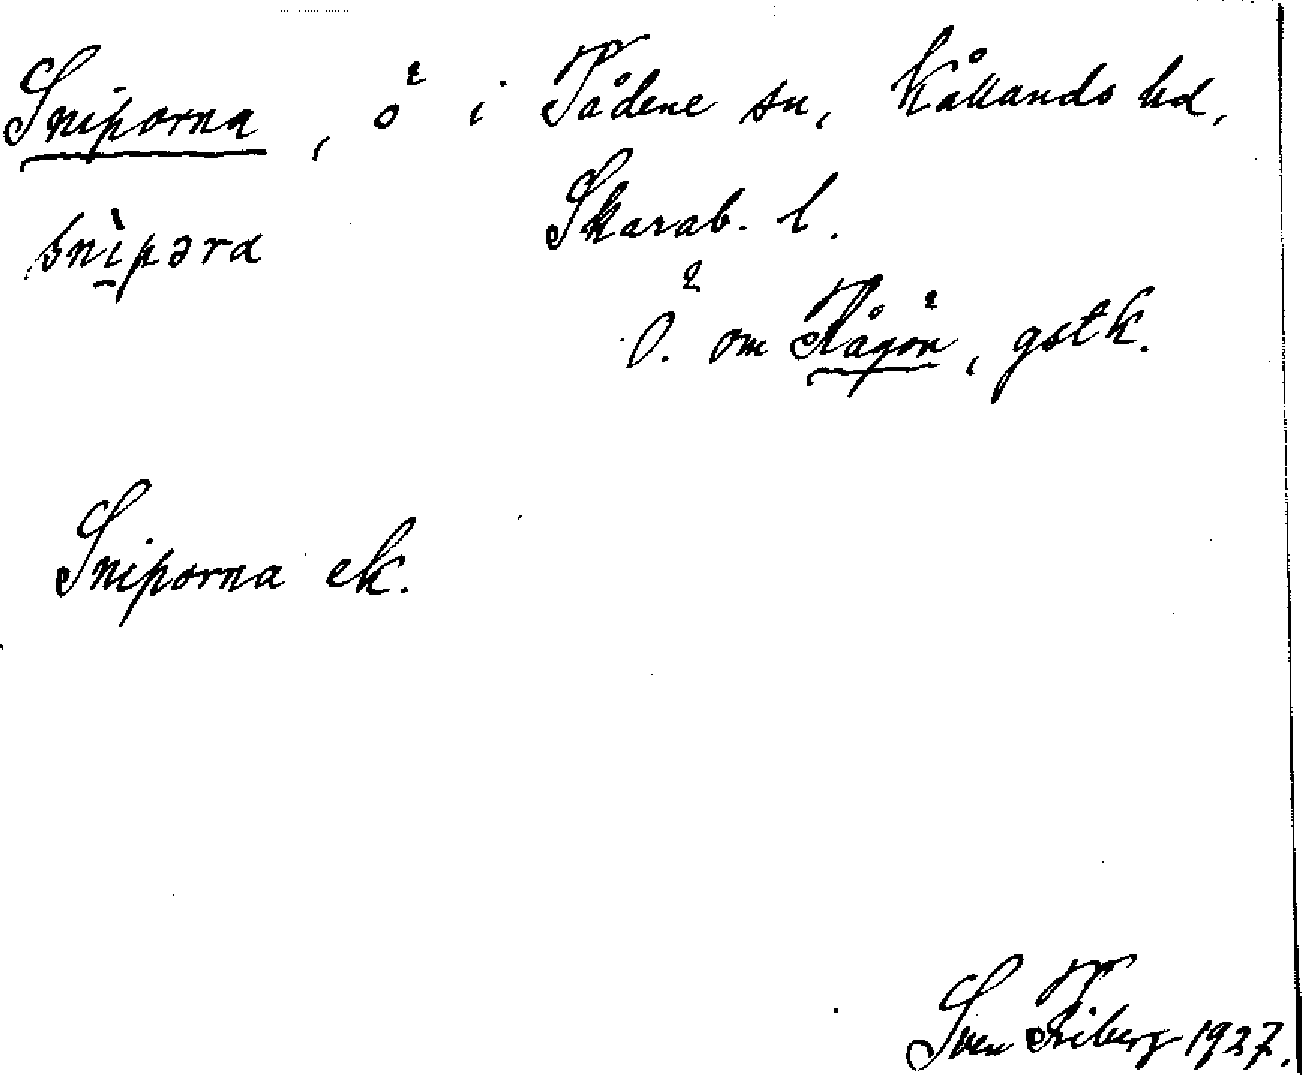 Sniporna, ö i Tådene sn, Kållands hd,
Skarab. l.
snìpəra
Ö. om Rågön, gstk.
Sniporna ek.
Sven Friberg 1927.